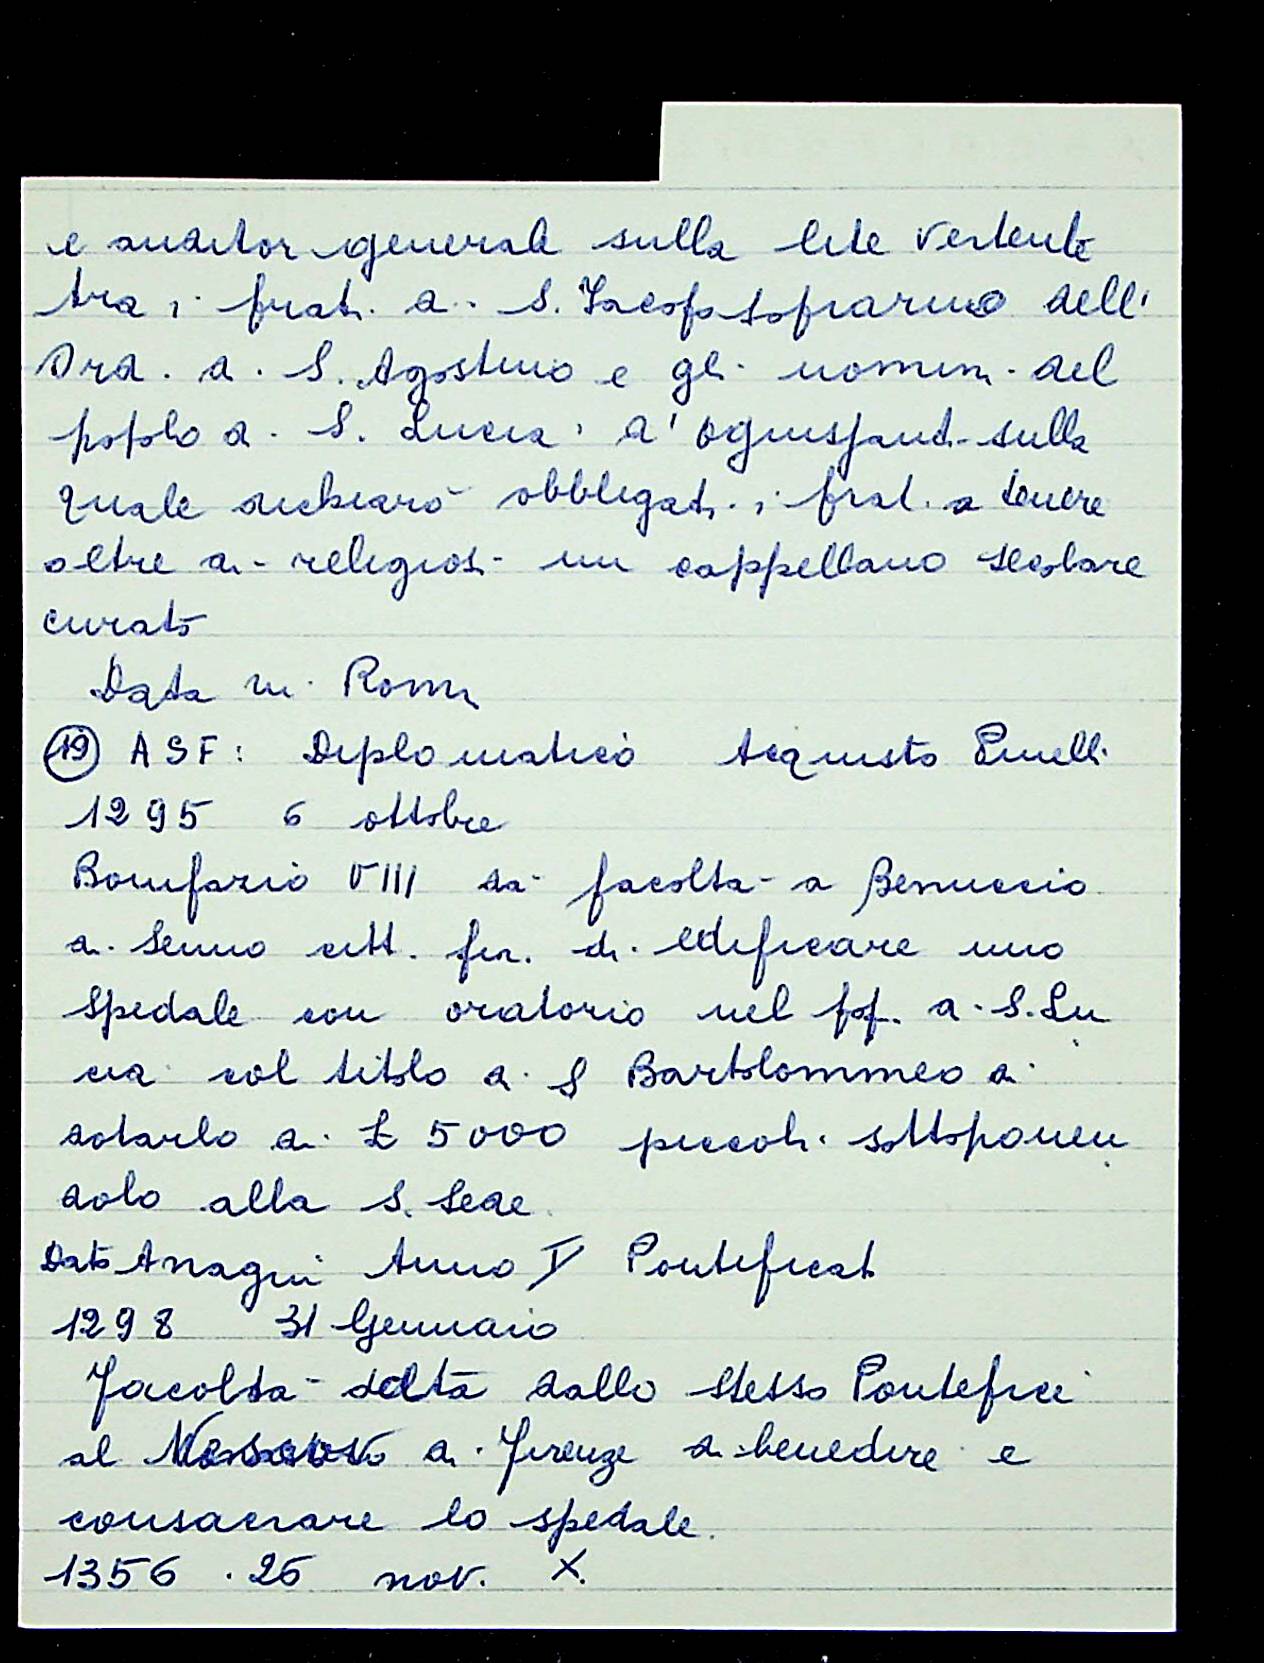 e auditor generale sulla lite vertente
tra i frati di S. Jacopo soprarno dell'
Ord. di S. Agostino e gli uomini del
popolo di S. Lucia d'ognissanti sulla
quale dichiarò obbligati i frati a tenere
oltre ai religiosi un cappellano secolare
curato
Data in Roma
19 ASF: Diplomatico Acquisto Pinelli
1295 6 ottobre
Bonifazio VIII dà facoltà a Benuccio
di Senno citt. fior. di edificare uno
spedale con oratorio nel pop. di S. Lu
cia col titolo di S Bartolommeo di
dotarlo di £ 5000 piccoli sottoponen
dolo alla S. Sede.
Dato Anagni Anno V Pontificat
1298 31 Gennaio
Facoltà data dallo stesso Pontefice
al Vescovo di Firenze di benedire e
consacrare lo spedale.
1356 . 26 nov. X.